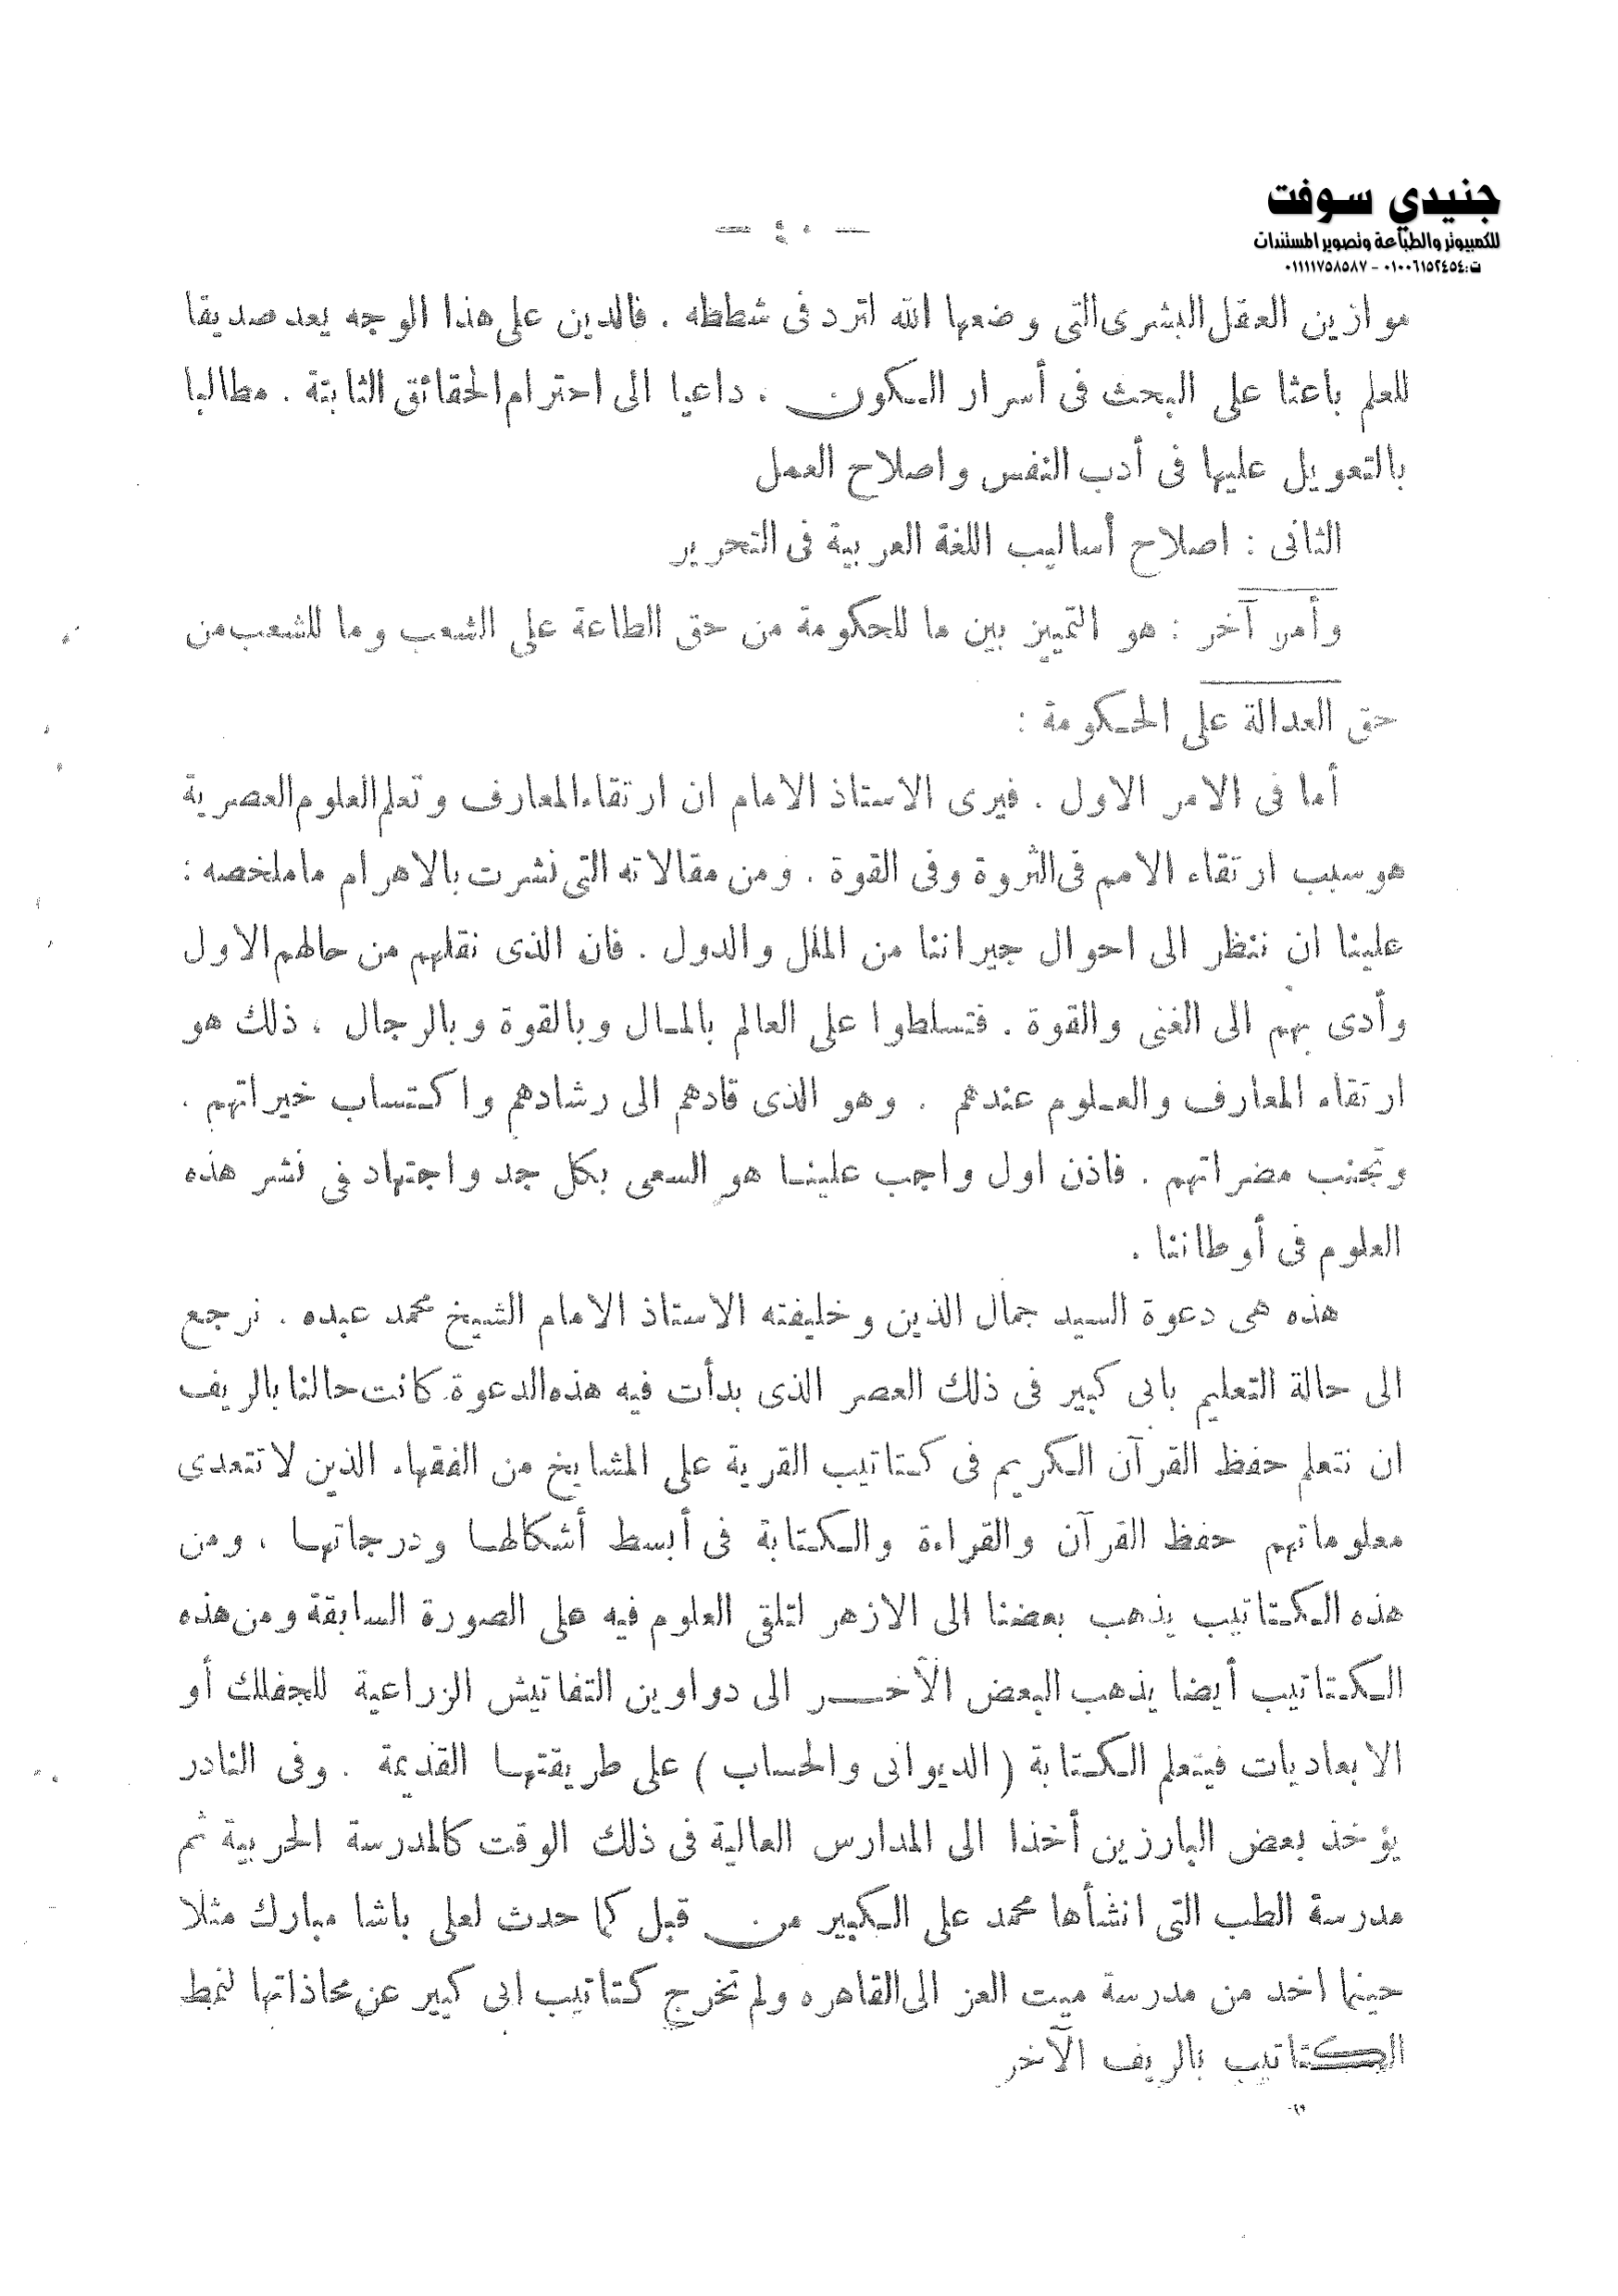 جنيدي سوفت
للكمبيوتر والطباعة وتصوير المستندات
ت:٠١٠٠٦١٥٢٤٥٤ - ٠١١١١٧٥٨٥٨٧
موازين العقل البشرى التى وضعها الله لترد فى شططه . فالدين على هذا الوجه يعد صديقا
للعلم باعثا على البحث فى أسرار الكون ، داعيا الى احترام الحقائق الثابتة . مطالبا
بالتعويل عليها فى أدب النفس واصلاح العمل
الثانى : اصلاح أساليب اللغة العربية فى التحرير
وأمر آخر : هو التمييز بين ما للحكومة من حق الطاعة على الشعب وما للشعب من
حق العدالة على الحكومة :
أما فى الامر الاول . فيرى الاستاذ الامام ان ارتقاء المعارف وتعلم العلوم العصرية
هو سبب ارتقاء الامم فى الثروة وفى القوة . ومن مقالاته التى نشرت بالاهرام ماملخصه :
علينا ان ننظر الى احوال جيراننا من الملل والدول . فان الذى نقلهم من حالهم الاول
وأدى بهم الى الغنى والقوة . فتسلطوا على العالم بالمال وبالقوة وبالرجال ، ذلك هو
ارتقاء المعارف والعلوم عندهم . وهو الذى قادهم الى رشادهم واكتساب خيراتهم .
وتجنب مضراتهم . فاذن اول واجب علينا هو السعى بكل جد واجتهاد فى نشر هذه
العلوم فى أوطاننا .
هذه هى دعوة السيد جمال الدين وخليفته الاستاذ الامام الشيخ محمد عبده . نرجع
الى حالة التعليم بابى كبير فى ذلك العصر الذى بدأت فيه هذه الدعوة كانت حالنا بالريف
ان نتعلم حفظ القرآن الكريم فى كتاتيب القرية على المشايخ من الفقهاء الذين لا تتعدى
معلوماتهم حفظ القرآن والقراءة والكتابة فى أبسط أشكالها ودرجاتها ، ومن
هذه الكتاتيب يذهب بعضنا الى الازهر لتلقى العلوم فيه على الصورة السابقة ومن هذه
الكتاتيب أيضا يذهب البعض الآخر الى دواوين التفاتيش الزراعية للجفلك أو
الابعاديات فيتعلم الكتابة ( الديوانى والحساب ) على طريقتها القديمة . وفى النادر
يؤخذ بعض البارزين أخذا الى المدارس العالية فى ذلك الوقت كالمدرسة الحربية ثم
مدرسة الطب التى انشأها محمد على الكبير من قبل كما حدث لعلى باشا مبارك مثلا
حينما اخد من مدرسة ميت العز الى القاهره ولم تخرج كتاتيب ابى كبير عن محاذاتها لنمط
الكتاتيب بالريف الآخر